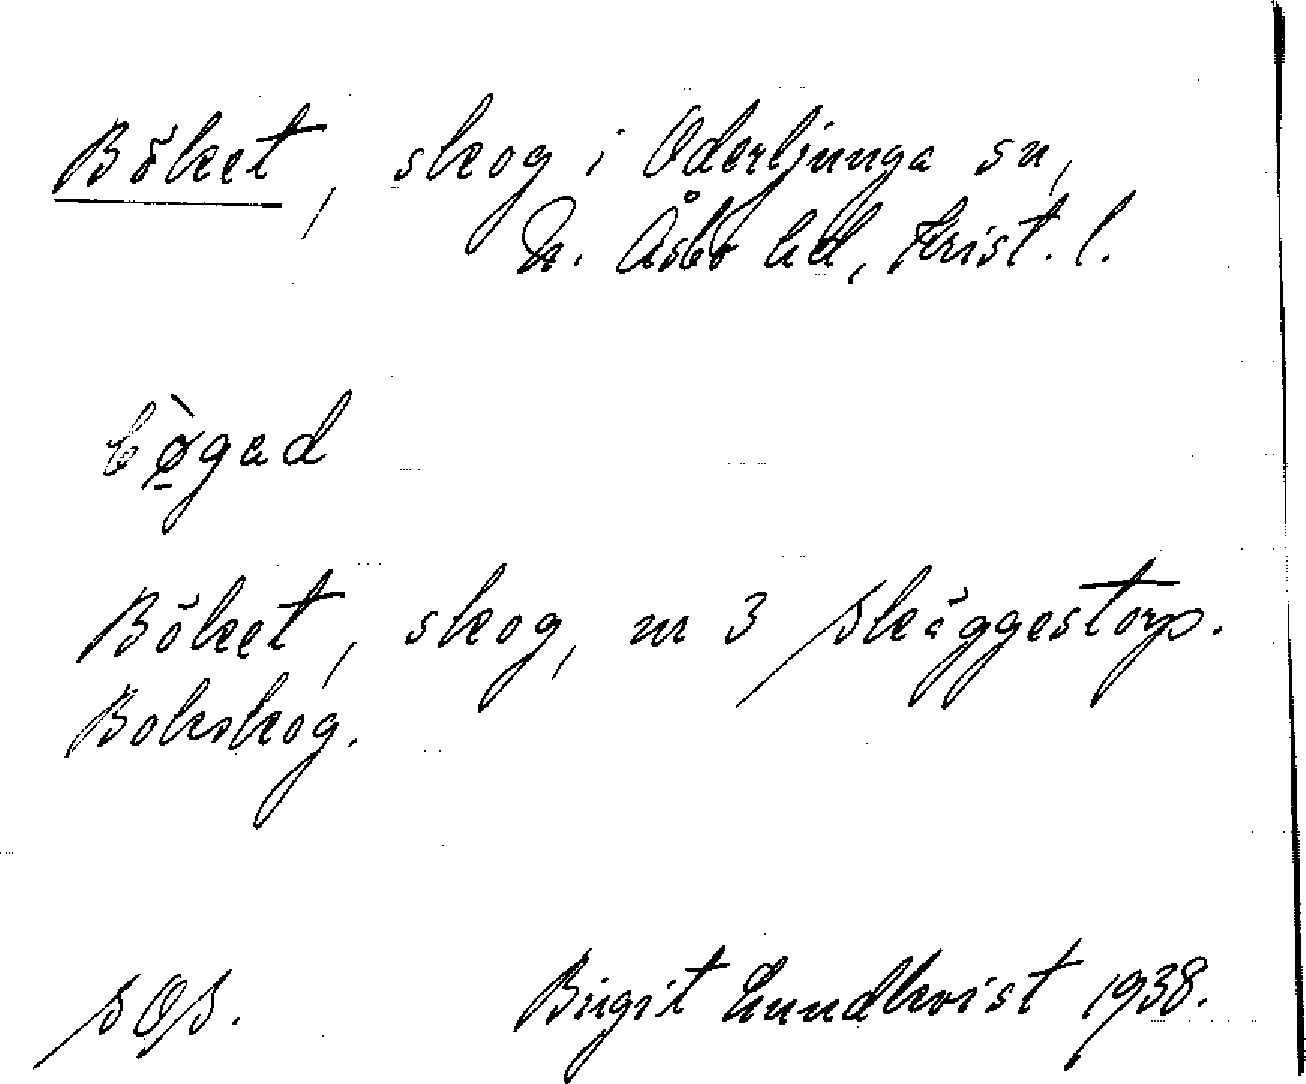 Böket, skog i Oderljunga sn,
N. Åsbo hd, Krist. l.
bø̱̀gad
Böket, skog, m 3 Skäggestorp.
Bokskog.
SOS. Birgit Lundkvist 1938.